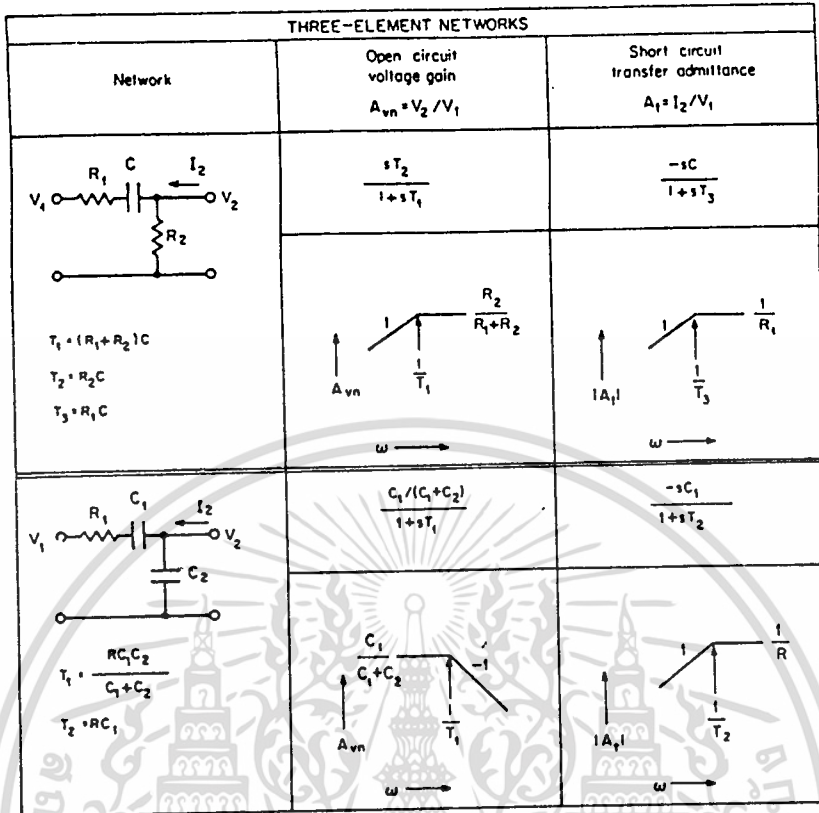 THREE-ELEMENT NETWORKS
Network
Open circuit
voltage gain
A_vn = V_2 / V_1
Short circuit
transfer admittance
A_t = I_2 / V_1
R_1 C I_2
V_1 V_2
R_2
T_1 = (R_1 + R_2) C
T_2 = R_2 C
T_3 = R_1 C
sT_2 / 1 + sT_1
-sC / 1 + sT_3
1 R_2 / R_1 + R_2
1 / T_1
A_vn
ω
1 1 / R_1
1 / T_3
|A_t|
ω
R_1 C_1 I_2
V_1 V_2
C_2
T_1 = RC_1C_2 / C_1 + C_2
T_2 = RC_1
C_1/(C_1 + C_2) / 1 + sT_1
-sC_1 / 1 + sT_2
C_1 / C_1 + C_2 -1
1 / T_1
A_vn
ω
1 1 / R
1 / T_2
|A_t|
ω